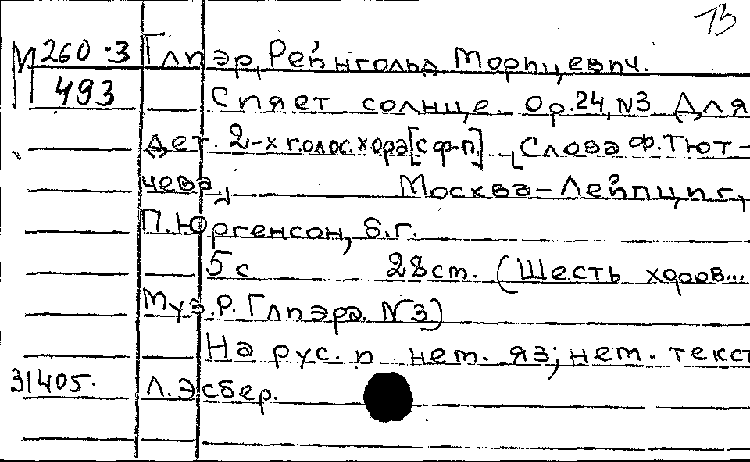 13
М 260-3 Глиэр, Рейнгольд Морицевич.
493 Сияет солнце. Op.24, N3 Для
дет. 2-х голос. хора [с ф-п.] [Слова Ф. Тют-
чева] Москва-Лейпциг,
П. Юргенсон, б.г.
5 с 28 cm. (Шесть хоров...
Муз. Р. Глиэра. N3)
На рус. и нем. яз; нем. текст
31405. Л. Эсбер.